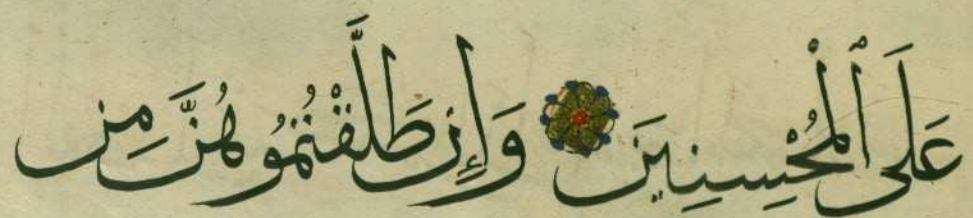 عَلَى ٱلْمُحْسِنِينَ وَإِن طَلَّقْتُمُوهُنَّ مِن